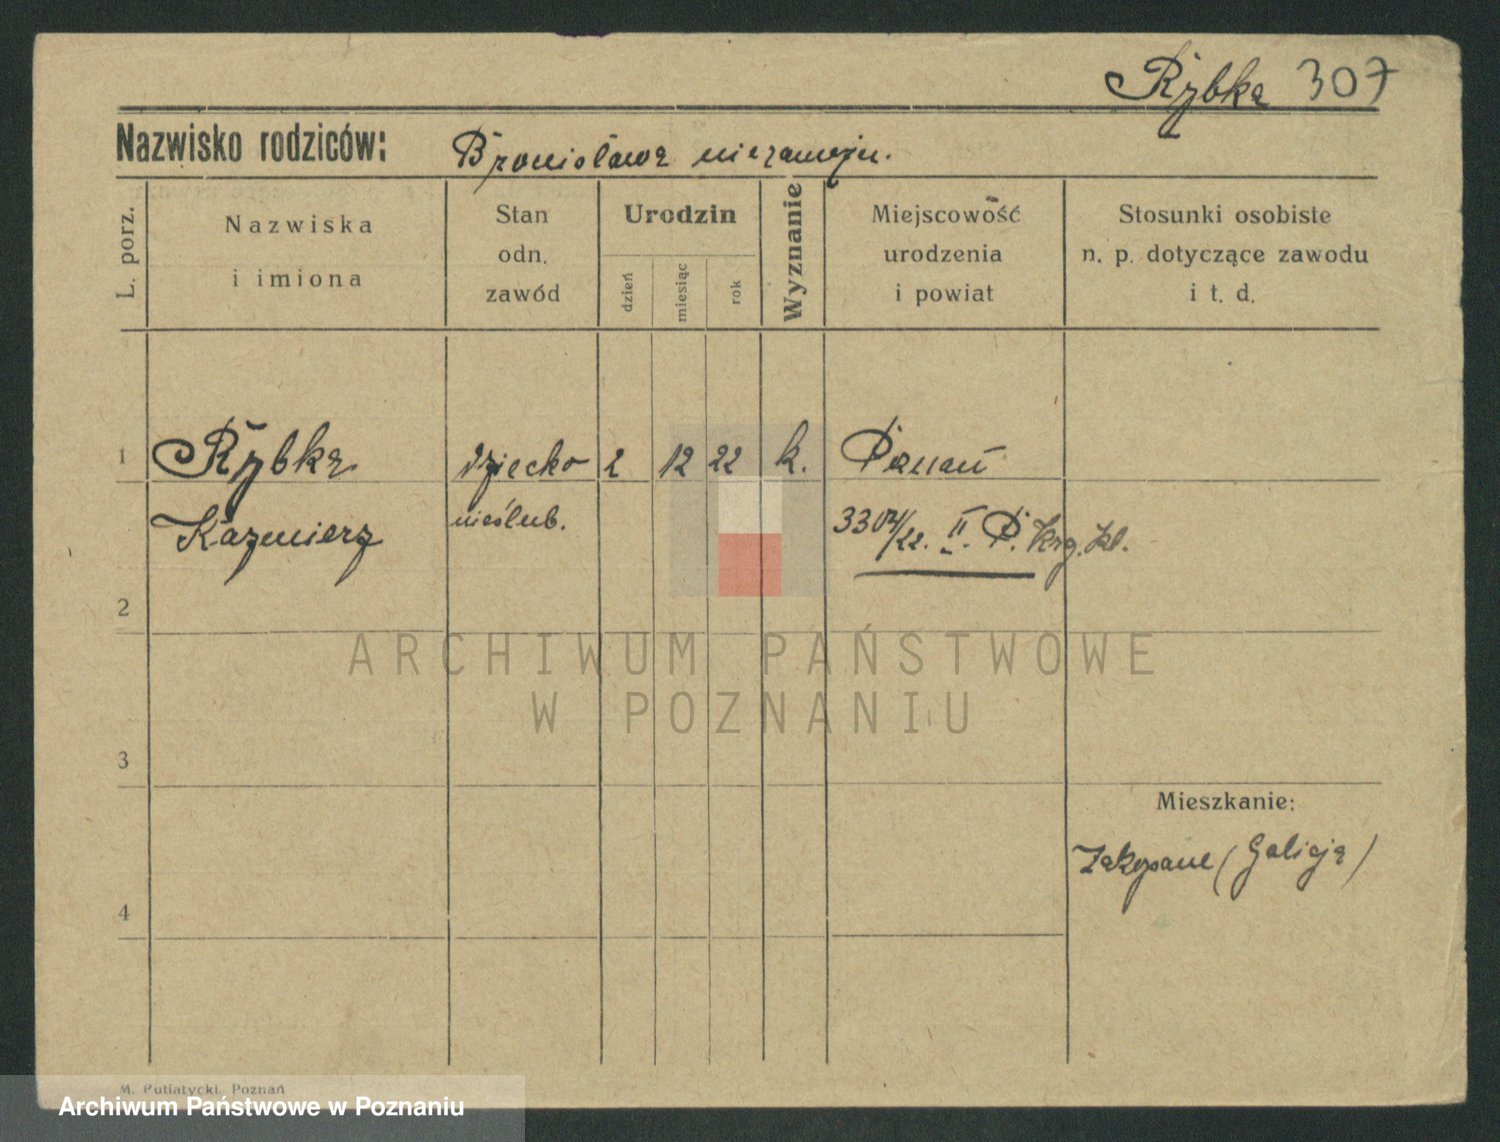 Rybka 307
Nazwisko rodziców: Bronisława niezamężn.
L. porz.
Nazwiska
i imiona
Stan
odn.
zawód
Urodzin
dzień
miesiąc
rok
Wyznanie
Miejscowość
urodzenia
i powiat
Stosunki osobiste
n. p. dotyczące zawodu
i t. d.
1 Rybka dziecko 2 12 22 k. Poznań
Kazmierz nieślub. 3304/22. II. P.
2
ARCHIWUM PAŃSTWOWE
W POZNANIU
3
Mieszkanie:
Zakopane (Galicja)
4
M. Putiatycki, Poznań
Archiwum Państwowe w Poznaniu